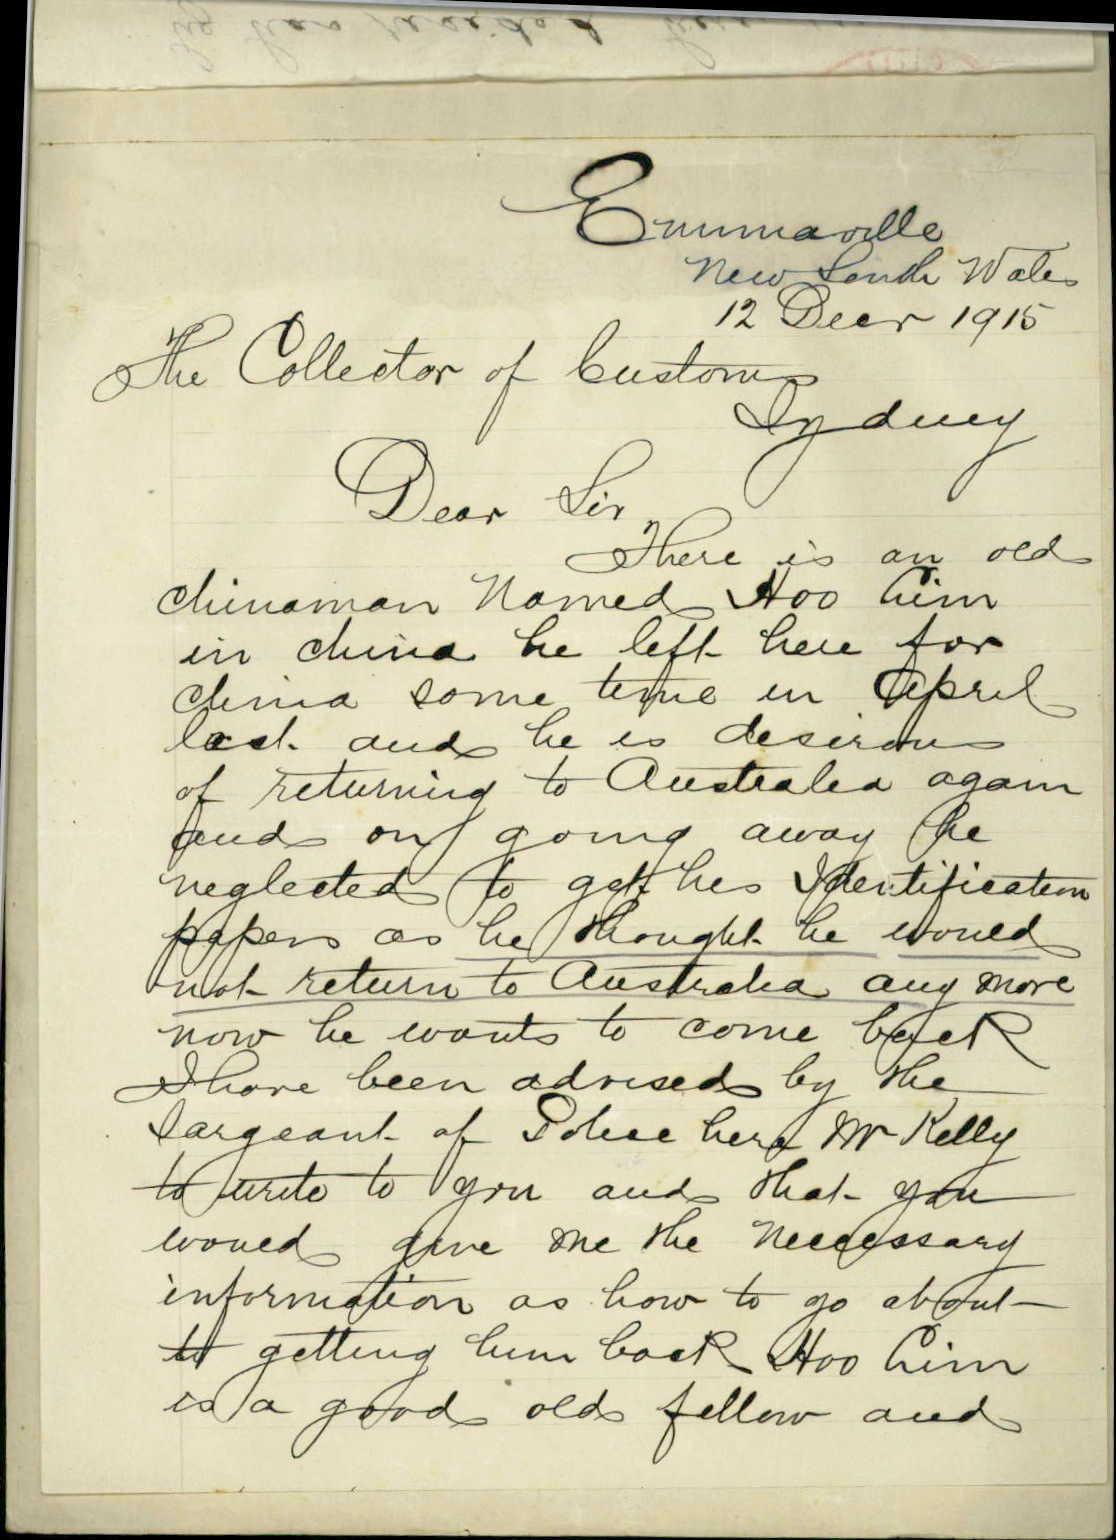 Emmaville
New South Wales
12 Decr 1915
The Collector of Customs
Sydney
Dear Sir
There is an old
chinaman Named Hoo Lim
in china he left here for
china some time in April
last and he is desirous
of returning to Australia again
and on going away he
neglected to get his Identification
papers as he thought he would
not return to Australia any more
now he wants to come back
I have been advised by the
Sargeant of Police here Mr Kelly
to write to you and that you
would give me the neccessary
information as how to go about
to getting him back Hoo Lim
is a good old fellow and